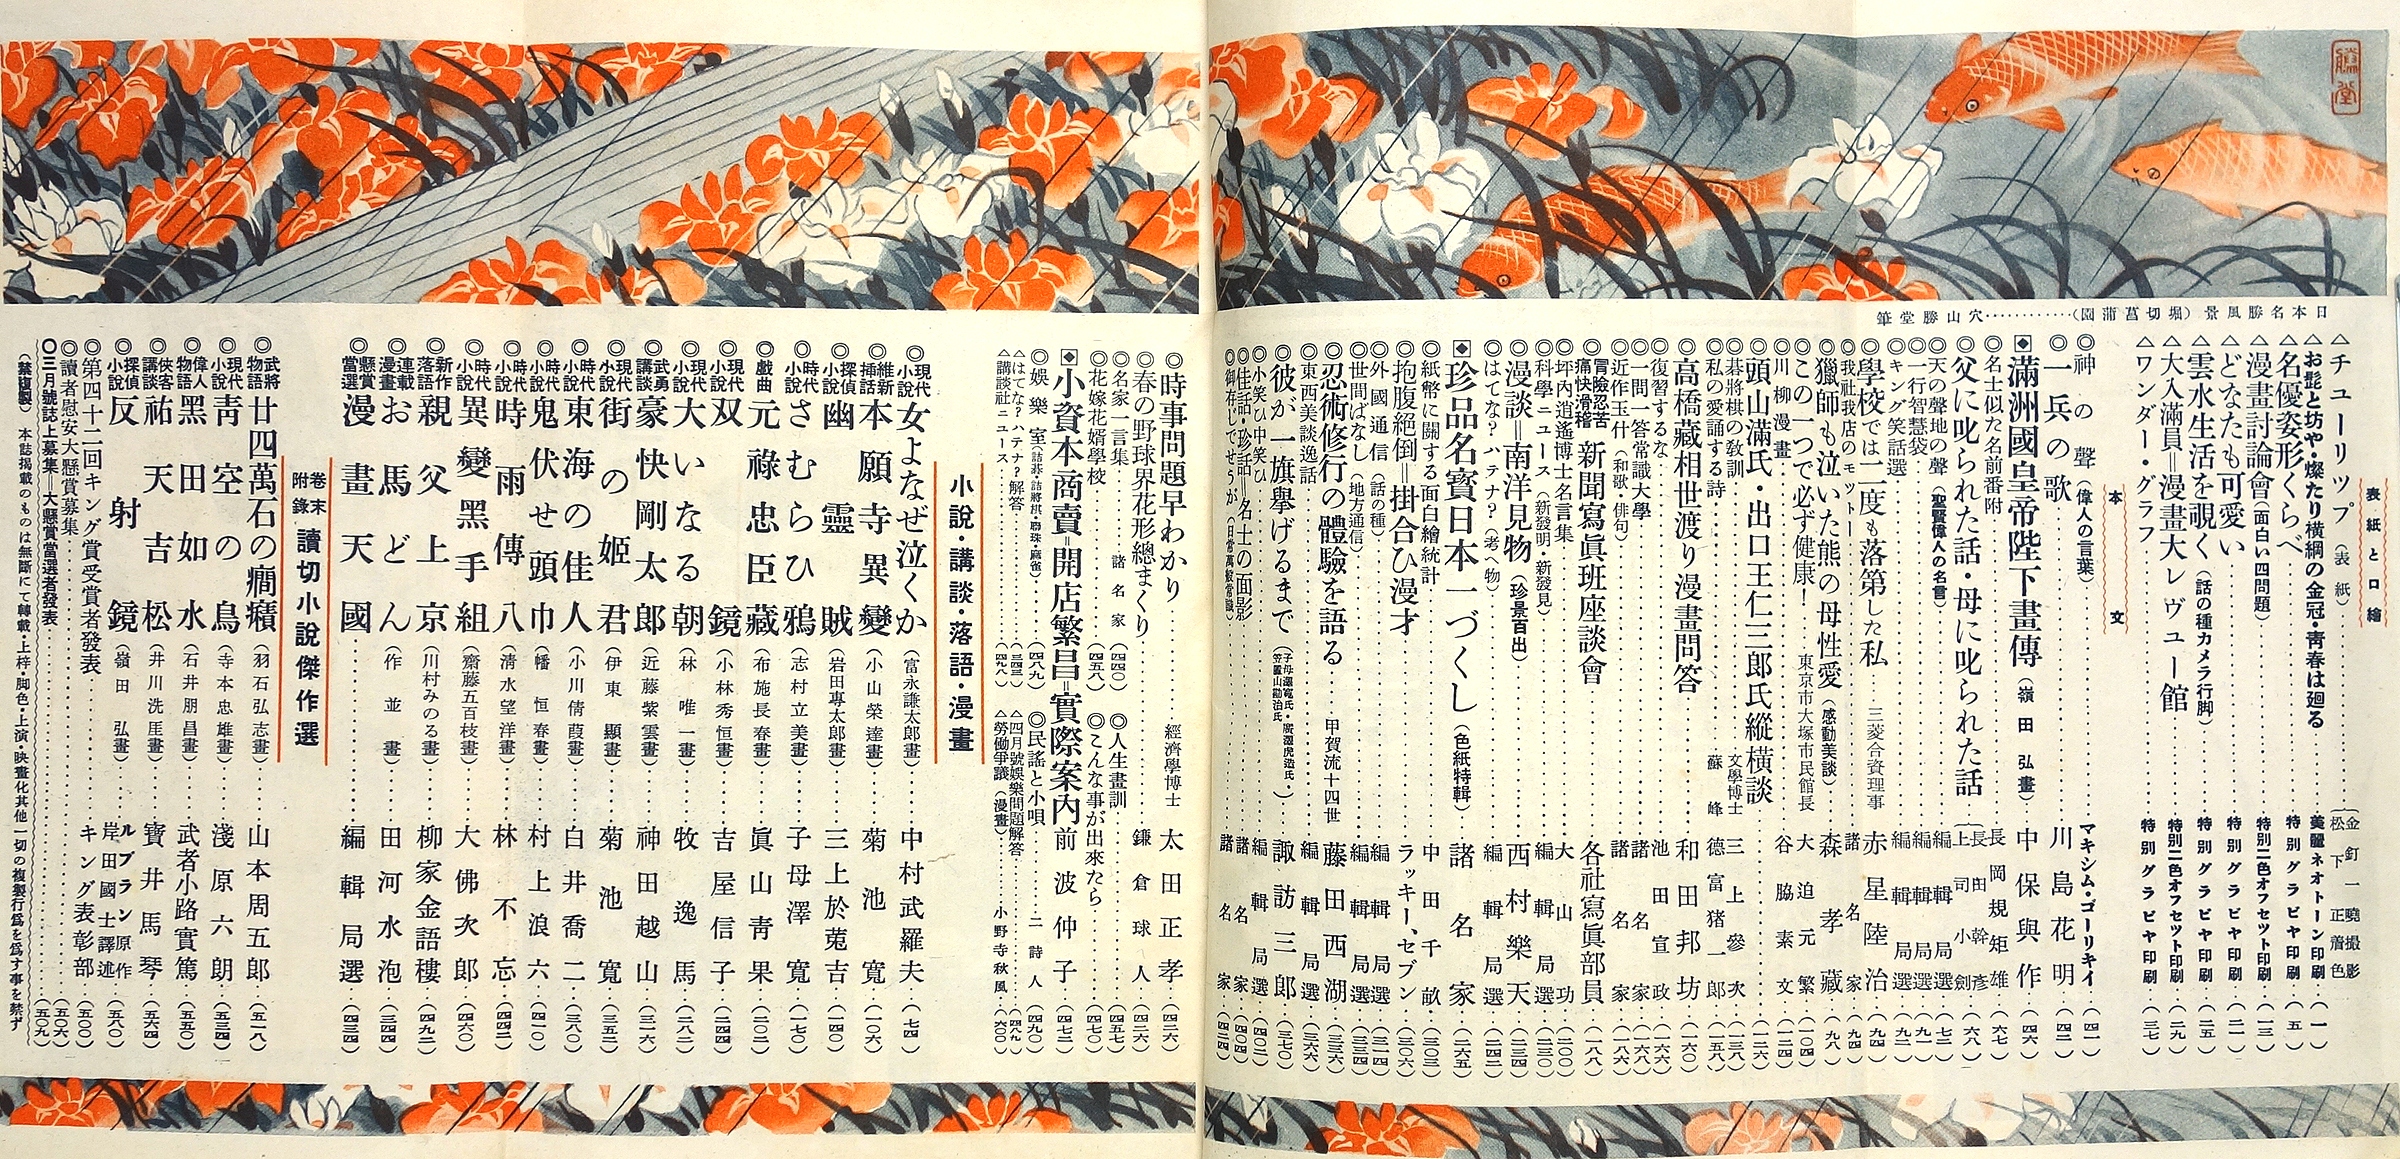 勝堂
日本名勝風景(堀切菖蒲園)…………穴山勝堂筆
表紙と口繪
△チューリップ(表紙)……(金釘一曉撮影 松下正着色)
△お髭と坊や・燦たり横綱の金冠・靑春は廻る……美麗ネオトーン印刷…(一)
△名優姿形くらべ……特別グラビヤ印刷…(五)
△漫畫討論會(面白い四問題)……特別二色オフセツト印刷…(一三)
△どなたも可愛い……特別グラビヤ印刷…(二一)
△雲水生活を覗く(話の種カメラ行脚)……特別グラビヤ印刷…(二五)
△大入滿員=漫畫大レヴュー館……特別二色オフセツト印刷…(二九)
△ワンダー・グラフ……特別グラビヤ印刷…(三七)
本文
◎神の聲(偉人の言葉)……マキシム・ゴーリキイ…(四一)
◎一兵の歌……川島花明…(四二)
◈滿洲國皇帝陛下畫傳(嶺田弘畫)……中保與作…(四六)
◎名士似た名前番附……長岡規矩雄…(六七)
◎父に叱られた話・母に叱られた話……(長田幹彥 上司小劍)…(六八)
◎天の聲地の聲(聖賢偉人の名言)……編輯局選…(七三)
◎一行智慧袋……編輯局選…(九一)
◎キング笑話選……編輯局選…(九二)
◎學校では二度も落第した私……三菱合資理事 赤星陸治…(九四)
◎我社我店のモットー……諸名家…(九四)
◎獵師も泣いた熊の母性愛(感動美談)……森孝藏…(九八)
◎この一つで必ず健康!……東京市大塚市民館長 大迫元繁…(一〇四)
◎川柳漫畫……谷脇素文…(一二四)
◎頭山滿氏・出口王仁三郎氏縱橫談……(一二六)
◎碁將棋の敎訓……文學博士 三上參次…(一三八)
◎私の愛誦する詩……蘇峰 德富猪一郎…(一五八)
◎高橋藏相世渡り漫畫問答……和田邦坊…(一六〇)
◎復習するな……池田宣政…(一六六)
◎一問一答常識大學……諸名家…(一六八)
◎近作玉什(和歌・俳句)……諸名家…(一八六)
◎冒險忍苦痛快滑稽 新聞寫眞班座談會……各社寫眞部員…(一八八)
◎坪內逍遙博士名言集……大山功…(二〇〇)
◎科學ニュース(新發明・新發見)……編輯局選…(二三〇)
◎漫談=南洋見物(珍景百出)……西村樂天…(二三四)
◎はてな?ハテナ?(考へ物)……編輯局選…(二四二)
◈珍品名寶日本一づくし(色紙特輯)……諸名家…(二六五)
◎紙幣に關する面白繪統計……中田千畝…(三〇三)
◎抱腹絕倒=掛合ひ漫才……ラッキー、セブン…(三〇六)
◎外國通信(話の種)……編輯局選…(三一四)
◎世間ばなし(地方通信)……編輯局選…(三三四)
◎忍術修行の體驗を語る……甲賀流十四世 藤田西湖…(三三六)
◎東西美談逸話……編輯局選…(三六六)
◎彼が一旗擧げるまで……諏訪三郎…(三七〇)
◎小笑ひ中笑ひ……編輯局選…(四〇二)
◎佳話・珍話=名士の面影……諸名家…(四〇四)
◎御存じでせうが(日常萬般常識)……諸名家…(四二四)
◎時事問題早わかり……經濟學博士 太田正孝…(四二六)
◎春の野球界花形總まくり……鎌倉球人…(四二六)
◎名家一言集……諸名家…(四四〇)
◎人生畫訓……(四五七)
◎花嫁花婿學校……(四五八)
◎こんな事が出來たら……(四七〇)
◈小資本商賣=開店繁昌=實際案內……前波仲子…(四七二)
◎娛樂室(詰碁・詰將棋・聯珠・麻雀)……(四八九)
◎民謠と小唄……二詩人…(四九〇)
△はてな?ハテナ?解答……(三四三)
△四月號娛樂問題解答……(四八九)
△講談社ニュース……(四九八)
△勞働爭議(漫畫)……小野寺秋風…(六〇〇)
小說・講談・落語・漫畫
◎現代小說 女よなぜ泣くか(富永謙太郎畫)……中村武羅夫…(七四)
◎維新揷話 本願寺異變(小山榮達畫)……菊池寬…(一〇六)
◎探偵小說 幽靈賊(岩田專太郎畫)……三上於菟吉…(一四〇)
◎時代小說 さむらひ鴉(志村立美畫)……子母澤寬…(一七〇)
◎戲曲 元祿忠臣藏(布施長春畫)……眞山靑果…(二〇二)
◎現代小說 双鏡(小林秀恒畫)……吉屋信子…(二四四)
◎現代小說 大いなる朝(林唯一畫)……牧逸馬…(二八二)
◎武勇講談 豪快剛太郎(近藤紫雲畫)……神田越山…(三一六)
◎現代小說 街の姬君(伊東顯畫)……菊池寬…(三五二)
◎時代小說 東海の佳人(小川倩葭畫)……白井喬二…(三八〇)
◎時代小說 鬼伏せ頭巾(幡恒春畫)……村上浪六…(四一〇)
◎時代小說 時雨傳八(淸水望洋畫)……林不忘…(四四二)
◎時代小說 異變黑手組(齋藤五百枝畫)……大佛次郎…(四六〇)
◎新作落語 親父上京(川村みのる畫)……柳家金語樓…(四九二)
◎連載漫畫 お馬どん(作並畫)……田河水泡…(三四四)
◎懸賞當選 漫畫天國……編輯局選…(四三四)
卷末附錄 讀切小說傑作選
◎武將物語 廿四萬石の癇癪(羽石弘志畫)……山本周五郎…(五一八)
◎現代小說 靑空の鳥(寺本忠雄畫)……淺原六朗…(五三四)
◎偉人物語 黑田如水(石井朋昌畫)……武者小路實篤…(五五〇)
◎俠客講談 祐天吉松(井川洗厓畫)……寶井馬琴…(五六四)
◎探偵小說 反射鏡(嶺田弘畫)……ルブラン原作 岸田國士譯述…(五八〇)
◎第四十二回キング賞受賞者發表……キング表彰部…(五〇〇)
◎讀者慰安大懸賞募集……(五〇六)
〇三月號誌上募集=大懸賞當選者發表……(五〇九)
(禁複製) 本誌揭載のものは無斷にて轉載・上梓・脚色・上演・映畫化其他一切の複製行爲を爲す事を禁ず